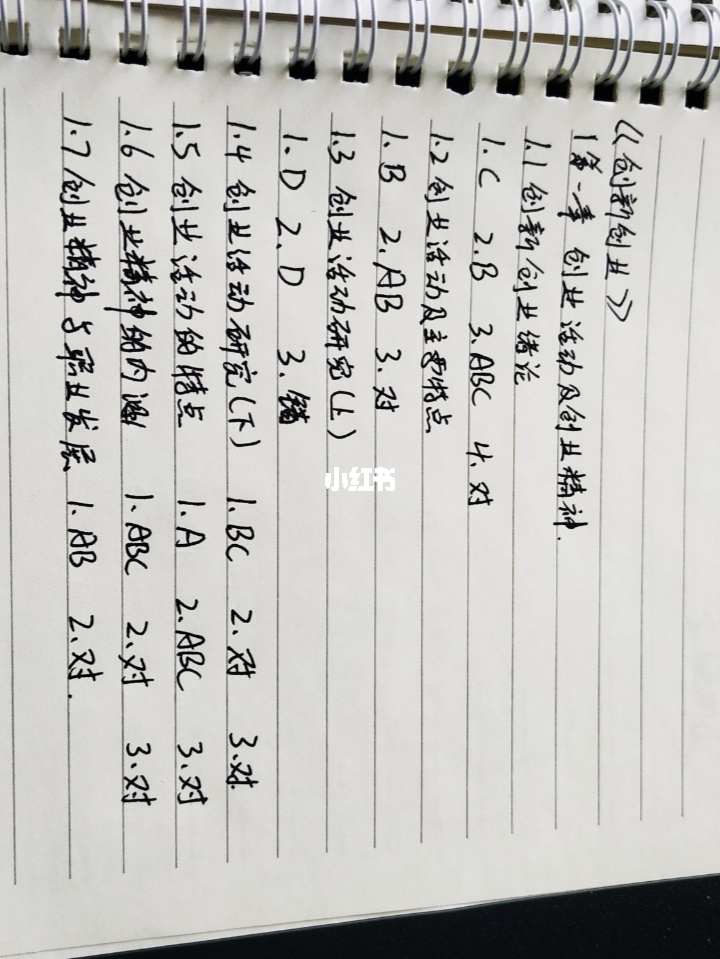 《创新创业》
第一章 创业活动及创业精神.
1.1 创新创业绪论
1. C 2. B 3. ABC 4. 对
1.2 创业活动及主要特点
1. B 2. AB 3. 对
1.3 创业活动研究(上)
1. D 2. D 3. 错
1.4 创业活动研究(下) 1. BC 2. 对 3. 对
1.5 创业活动的特点 1. A 2. ABC 3. 对
1.6 创业精神的内涵 1. ABC 2. 对 3. 对
1.7 创业精神与职业发展 1. AB 2. 对.
小红书